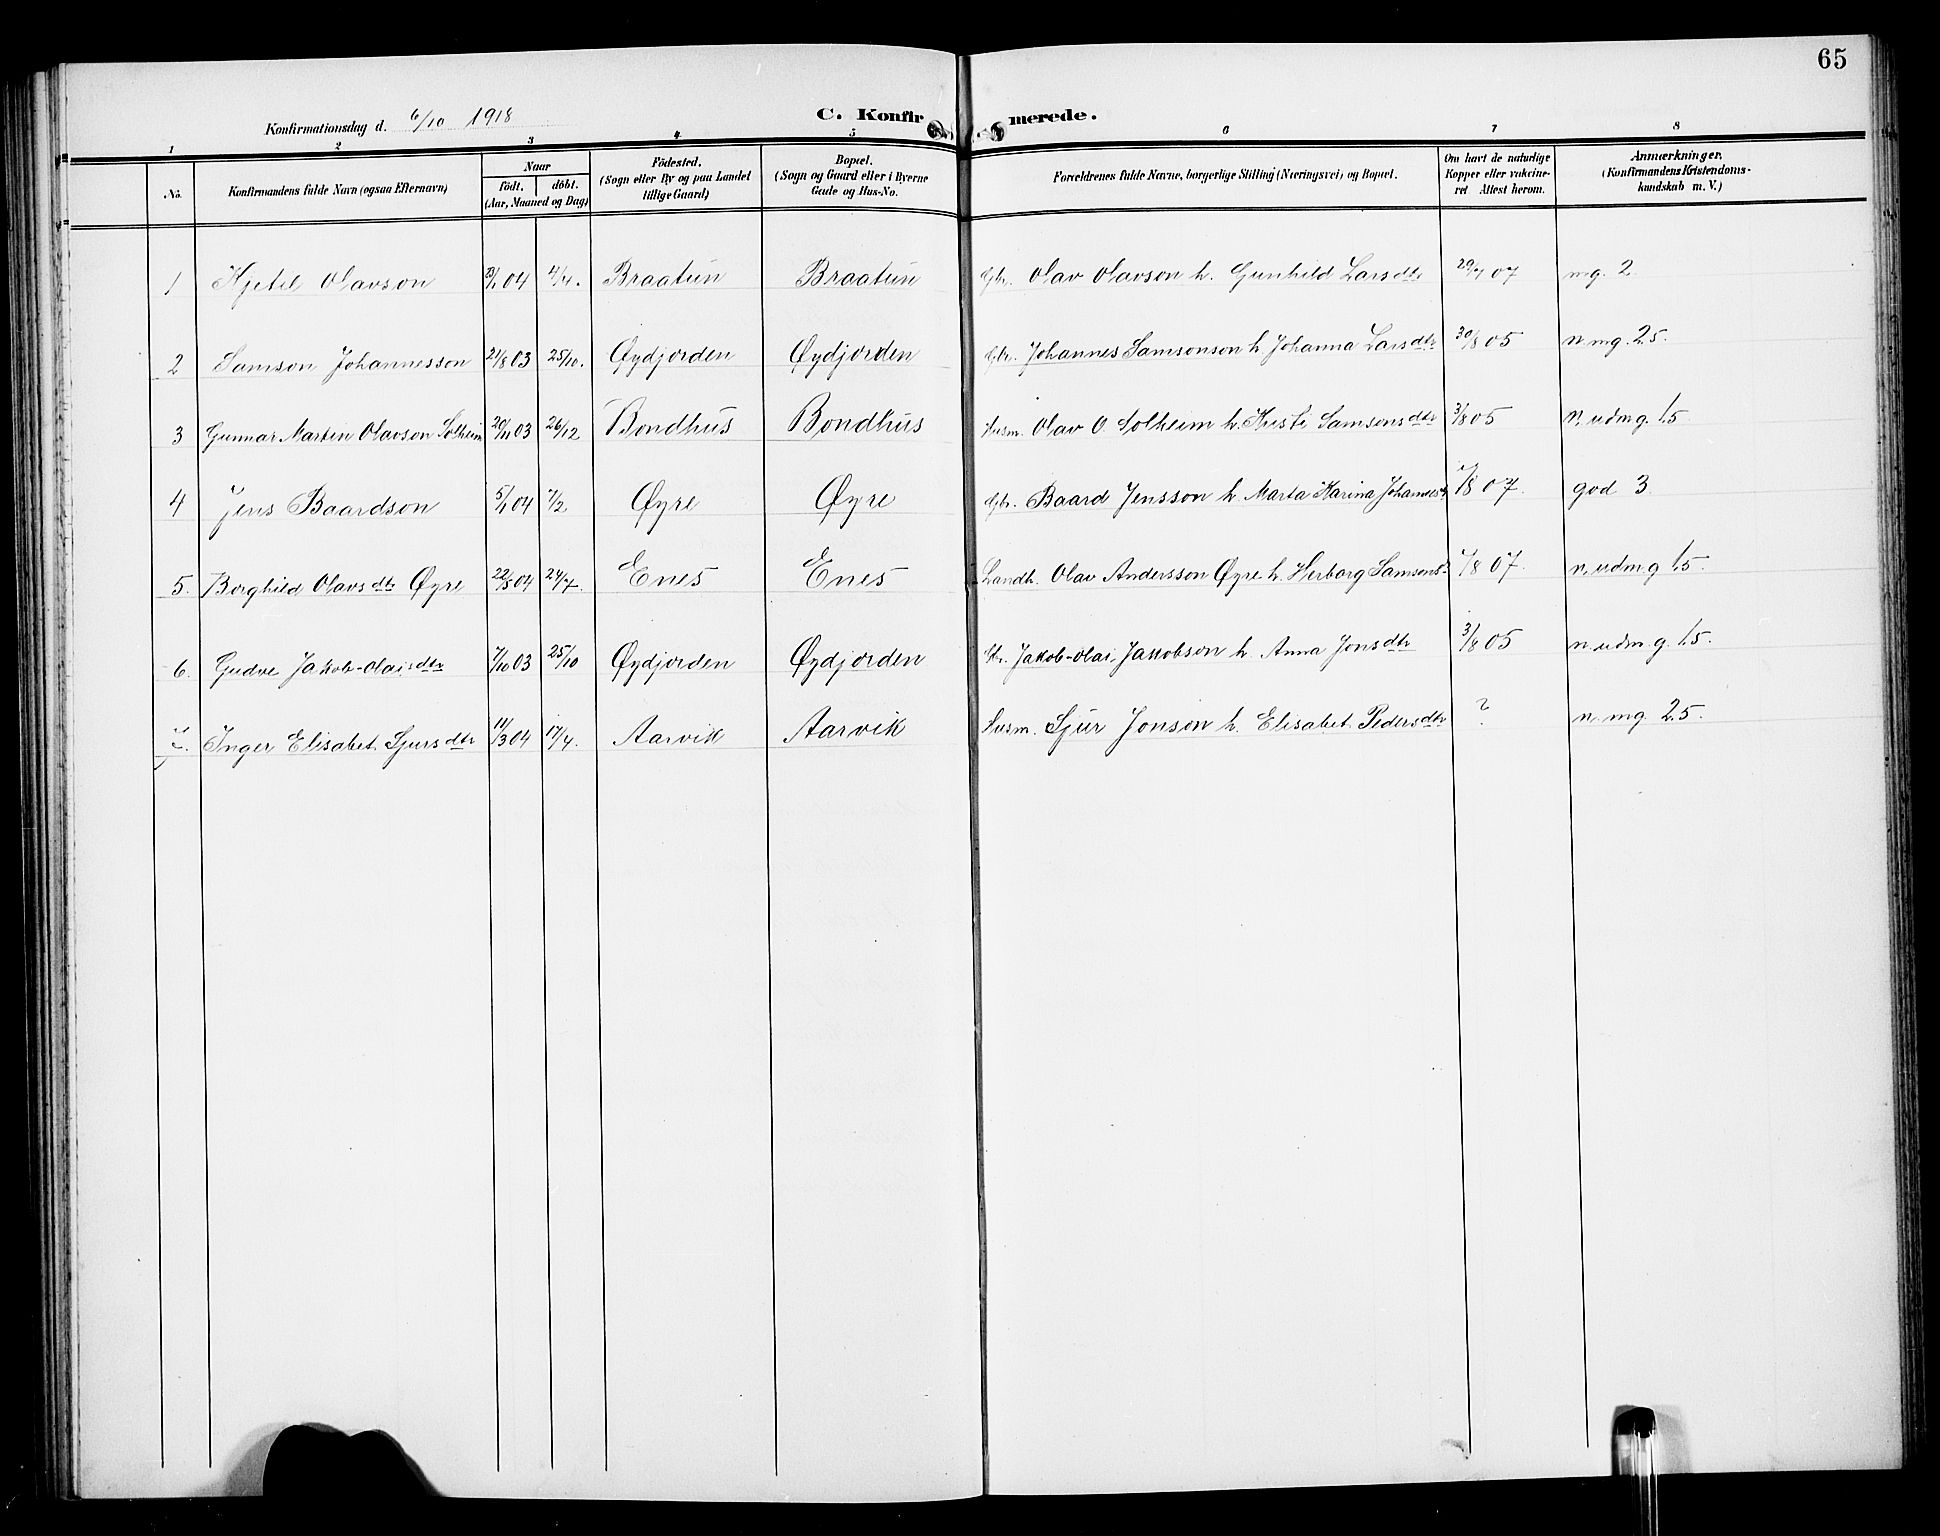 65
Konfirmationsdag d. 6/10 1918 C. Konfirmerede.
1 2 3 4 5 6 7 8
No. Konfirmandens fulde Navn (ogsaa Efternavn) Naar födt. döbt. (Aar, Maaned og Dag) Födested. (Sogn eller By og paa Landet tillige Gaard) Bopæl. (Sogn og Gaard eller i Byerne Gade og Hus-No. Forældrenes fulde Navne, borgerlige Stilling (Næringsvei) og Bopæl. Om havt de naturlige Kopper eller vakcineret Attest herom. Anmærkninger. (Konfirmandens Kristendomskundskab m. V.)
1 Kjetil Olavson 04 4/4. Braatun Braatun Gbr. Olav Olavson h. Gunhild Larsdtr 29/7 07 mg. 2
2 Samson Johannesson 21/8 03 25/10. Øydjorden Øydjorden Gbr. Johannes Samsonson h. Johanna Larsdtr 30/8 05 n. mg. 2.5.
3 Gunnar Martin Olavson Solheim 20/11 03 26/12 Bondhus Bondhus Husm. Olav O. Solheim h. Kristi Samsonsdtr 3/8 05 n. udmg. 1.5
4 Jens Baardson 5/1 04 7/2 Øyre Øyre Gbr. Baard Jensson h. Marta Karina Johannesd. 1/8 07. god 3
5. Borghild Olavsdtr Øyre 22/5 04 24/7. Enes Enes Landh. Olav Andersson Øyre h. Herborg Samsons- 1/8 07. n. udmg 1.5.
6. Gudve Jakob-Olaisdtr 7/10 03 25/10 Øydjorden Øydjorden Jakob-Olai Jakobson h. Anna Jonsdtr 3/8 05 n. udm g. 1.5.
Inger Elisabet Sjursdtr 11/3 04 17/4. Aarvik Aarvik Husm. Sjur Jonson h. Elisabet Pedersdtr ? n. mg. 2.5.